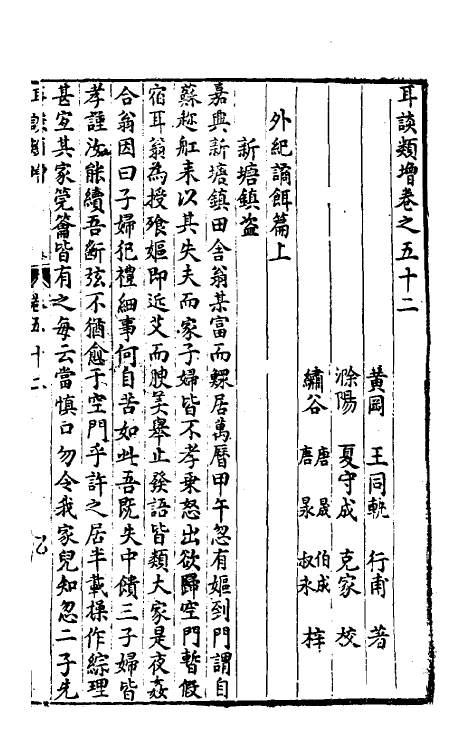 耳談類增卷之五十二
黃岡 王同軌 行甫 著
滁陽 夏守成 克家 校
繡谷 唐晟 伯成 唐㫤 叔永 梓
外紀譎餌篇上
新塘鎮盜
嘉興新塘鎮田舍翁某富而鰥居萬曆甲午忽有嫗到門謂自
蘇趁舡来以其失夫而家子婦皆不孝乗怒出欲歸空門暫假
宿耳翁為授飱嫗即近艾而腴美舉止發語皆類大家是夜姦
合翁因曰子婦犯禮細事何自苦如此吾既失中饋三子婦皆
孝謹汝能續吾斷弦不猶愈于空門乎許之居半載操作綜理
甚宜其家筦籥皆有之每云當慎口勿令我家兒知忽二子先
耳談類增 卷五十二